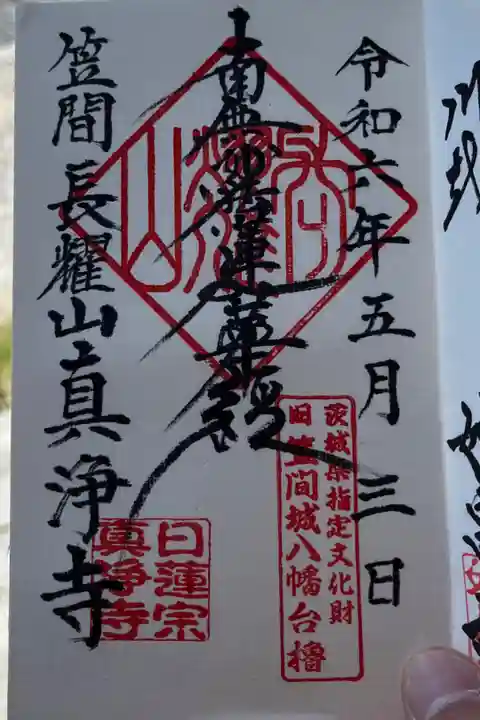 令和六年五月三日
南無妙法蓮華経
笠間長耀山真浄寺
長耀山
茨城県指定文化財
旧笠間城八幡台櫓
日蓮宗
真浄寺